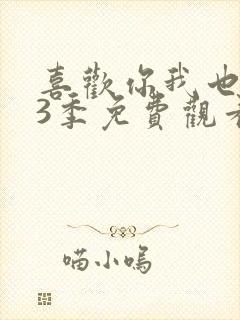 喜歡你我也
3季免費觀看
喵小嗚